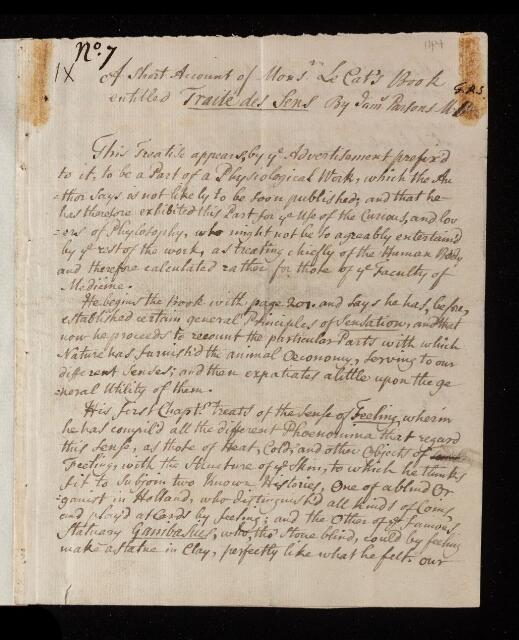 No. 7
184
IX
A Short Account of Monsr. Le Cat's Book
entitled Traité des Sens By Jams. Parsons M.D.
F.R.S.
This Treatise appears, by ye. Advertisement prefix'd
to it, to be a Part of a Physiological Work, which the Au
=thor Says is not likely to be soon published; and that he
has therefore exhibited this Part for ye Use of the Curious, and lov
=ers of Phylosophy, who might not be so agreably entertain'd
by ye. rest of the work, as treating chiefly of the Human Body
and therefore calculated rather for those of ye. Faculty of
Medicine.
He begins the Book with page 201. and says he has, before,
established certain general Principles of Sensation, and that
now he proceeds to recount the particular Parts with which
Nature has furnish'd the animal Oeconomy, serving to our
different Senses; and then expatiates a little upon the ge
=neral Utility of them.
His First Chaptr. treats of the Sense of Feeling, wherein
he has compil'd all the different Phoenomina that regard
this Sense, as those of Heat, Cold, and other Objects of
Feeling; with the Structure of ye. Skin; to which he thinks
fit to Subjoin two known Histories, One of a blind Or
=ganist in Holland, who distinguish'd all kinds of Coins,
and play'd at Cards by feeling; and the Other of ye. famous
Statuary Gambasius, who, tho' Stone blind, could by feeling
make a Statue in Clay, perfectly like what he felt. Our